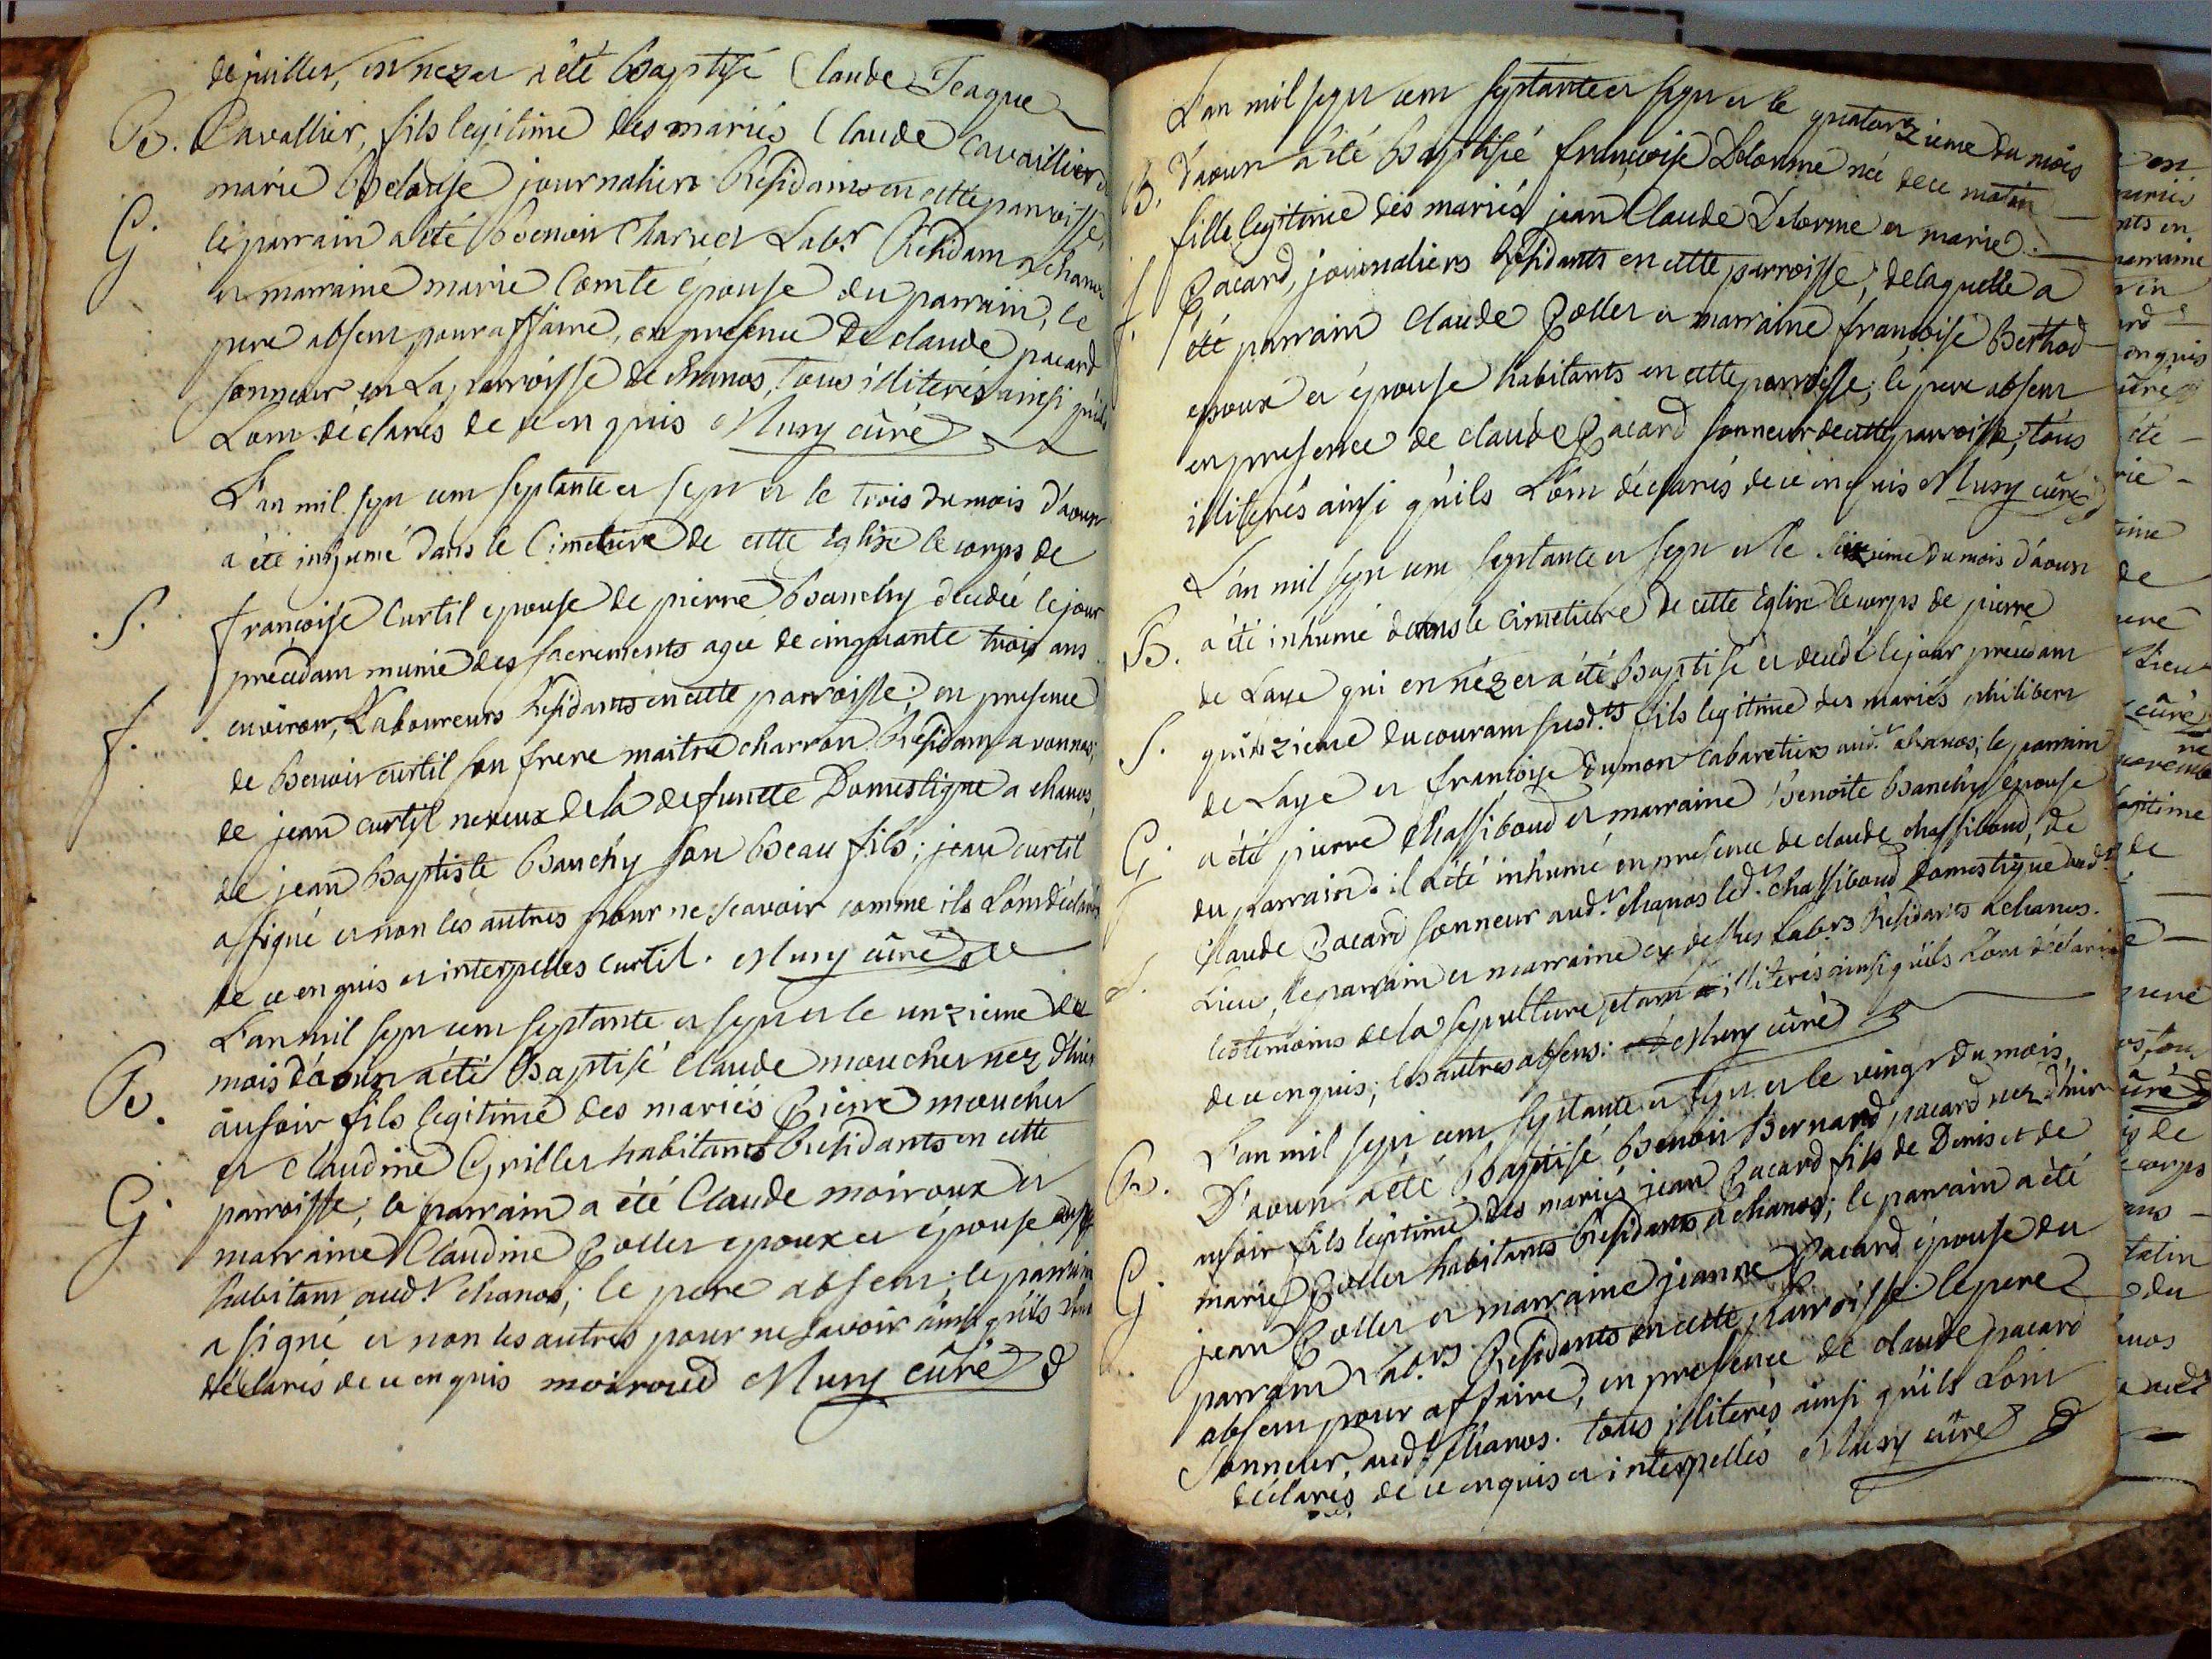 de juillet, est nez et a été Baptisé Claude Jeaque
B. Cavallier, fils legitime des mariés Claude Cavaillier et
marie Belouse journaliers Residants en cette parroisse,
G le parrain a été Benoit Charvet Labr. Residant a chanos
et marraine marie Comte épouse du parrain, le
pere absent pour affaire, en presence de claude pacard
sonneur en La parroisse de Chanos, tous illiterés ainsi qu'ils
L'ont déclarés de ce enquis Muny curé
L'an mil sept cent septante et sept et le trois du mois d'aoust
a été inhumé dans le Cimetiere de cette Eglise le corps de
S. françoise Curtil epouse de pierre Banchy decedée le jour
precedant munie des sacrements agée de cinquante trois ans
f. environ, Laboureurs Residants en cette parroisse; en presence
de Benoit curtil son frere maitre charron Residant a vonnas;
de jean curtil neveux de la defuncte Domestique a chanos,
de jean Baptiste Banchy son Beau fils; jean curtil
a signé et non les autres pour ne scavoir comme ils L'ont déclarés
de ce enquis et interpelles curtil. Muny curé
L'an mil sept cent septante et sept et le unzieme du
B. mois d'aoust a été Baptisé Claude moucher nez d'hier
au soir fils legitime des mariés Pierre moucher
et Claudine Griller habitants Residants en cette
G parroisse; le parrain a été Claude moiroux et
marraine Claudine Poller epoux et épouse aussi
habitant audt. chanos; le pere absent; le parrain
a signé et non les autres pour ne savoir ainsi qu'ils L'ont
déclarés de ce enquis moiroud Muny curé
L'an mil sept cent septante et sept et le quatorzieme du mois
B. d'aoust a été Baptisé françoise Delorme née de ce matin
fille legitime des mariés jean Claude Delorme et marie
f. Pacard, journaliers Residants en cette parroisse; de laquelle a
été parrain Claude Poller et marraine françoise Berthod
epoux et épouse habitants en cette parroisse; le pere absent
en presence de claude Pacard sonneur de cette parroisse, tous
illiterés ainsi qu'ils L'ont déclarés de ce enquis Muny curé
L'an mil sept cent septante et sept et le seizieme du mois d'aoust
B. a été inhumé dans le Cimetiere de cette Eglise le corps de pierre
de Laye qui est néz et a été Baptisé et decedé le jour precedant
S. quinzieme du courant susdts. fils legitime des mariés philibert
de Laye et françoise Dumon Cabaretiers audt. chanos; le parrain
G a été pierre Chassiboud et marraine Benoite Banchy épouse
du parrain. il a été inhumé en presence de claude chassiboud, de
Claude Pacard sonneur audt. chanos ledt. Chassiboud Domestique audt.
Lieu, le parrain et marraine cy dessus Labrs Residants a chanos.
les temoins de la sepulture etant illiterés ainsi qu'ils L'ont déclarés
de ce enquis; les autres absens. Muny curé
L'an mil sept cent septante et sept et le vingt du mois
B. D'aoust a été Baptisé Benoit Bernard pacard nez d'hier
au soir fils legitime des mariés jean Pacard fils de Denis et de
marie Poller habitants Residants a chanos; le parrain a été
G jean Poller et marraine jeanne Pacard épouse du
parrain Labrs Residants en cette parroisse le pere
absent pour affaire, en presence de claude pacard
sonneur, audt. Chanos. tous illiterés ainsi qu'ils L'ont
déclarés de ce enquis et interpellés Muny curé